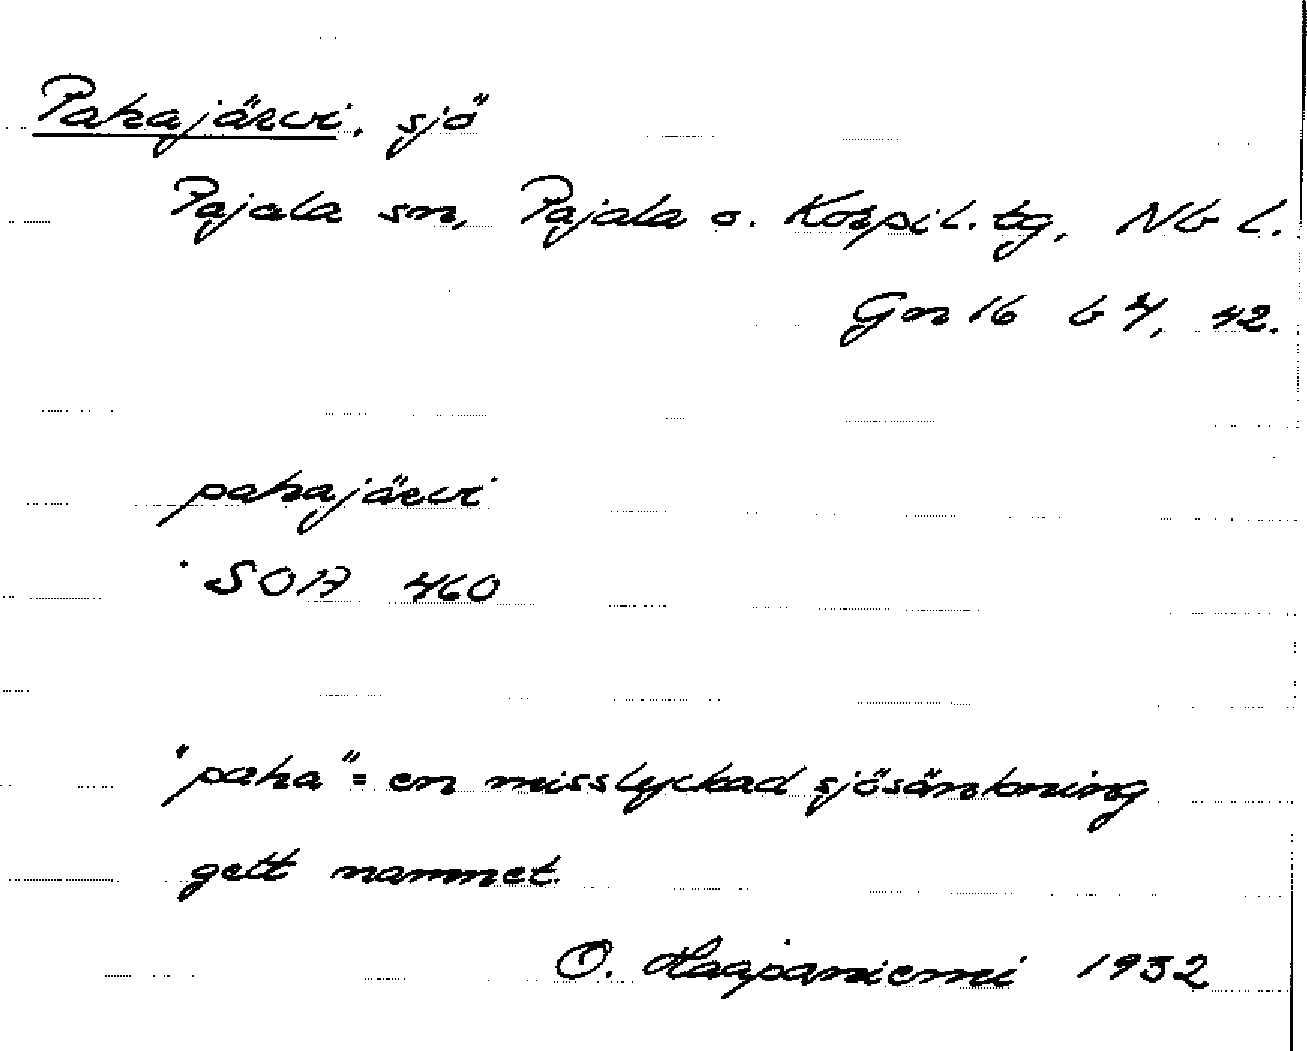 Pahajärvi, sjö
Pajala sn, Pajala o. Korpil. tg, Nb l.
Gn 16 b 4, 42.
pahajärvi
SOA 460
"paha" = en misslyckad sjösänkning
gett namnet.
O. Haapaniemi 1932